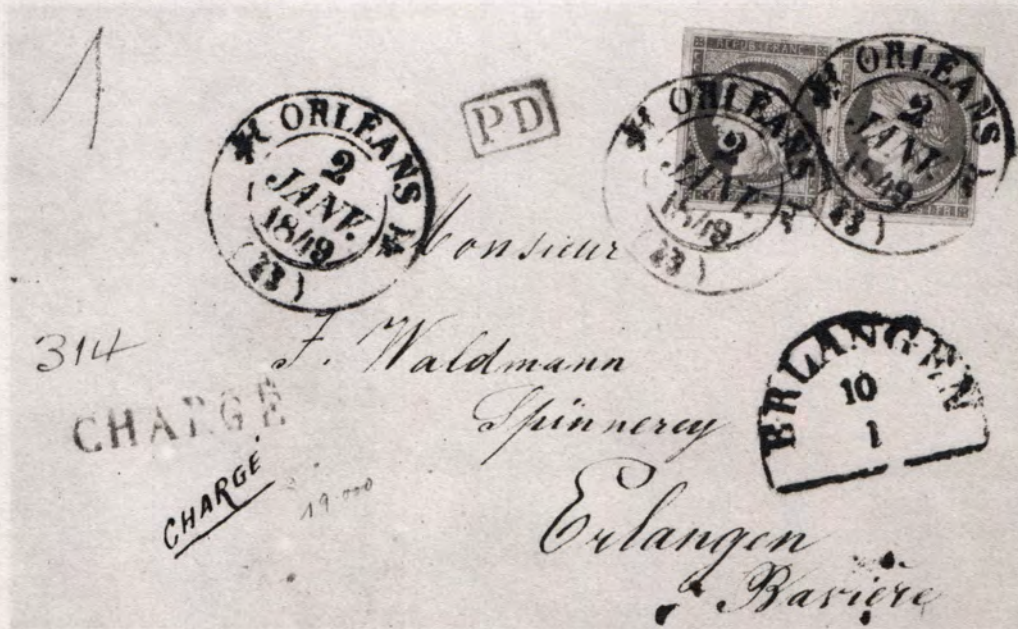 1
ORLEANS
2
JANV.
1849
(43)
PD
REPUB FRANC
ORLEANS
2
JANV.
1849
(43)
ORLEANS
2
JANV.
1849
(43)
Monsieur
314
F. Waldmann
CHARGÉ
Spinnerey
ERLANGEN
10
1
CHARGÉ
19.000
Erlangen
Bavière